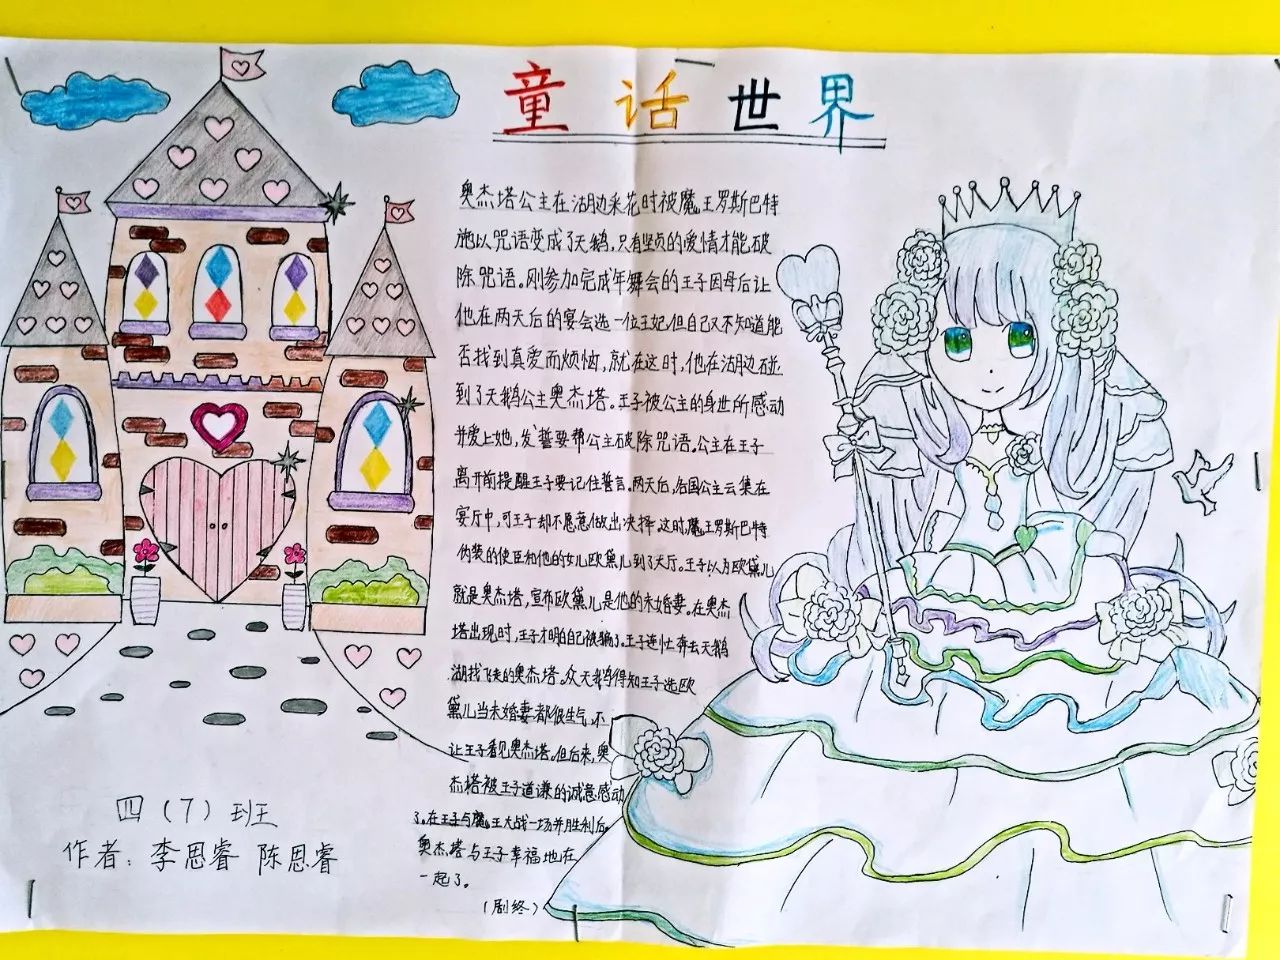 童话世界
奥杰塔公主在湖边采花时被魔王罗斯巴特
施以咒语变成了天鹅,只有坚贞的爱情才能破
除咒语。刚参加完成年舞会的王子因母后让
他在两天后的宴会选一位王妃,但自己又不知道能
否找到真爱而烦恼,就在这时,他在湖边碰
到了天鹅公主奥杰塔。王子被公主的身世所感动
并爱上她,发誓要帮公主破除咒语。公主在王子
离开前提醒王子要记住誓言。两天后,各国公主云集在
宴厅中,可王子却不愿意做出决择。这时魔王罗斯巴特
伪装的使臣和他的女儿欧黛儿到了大厅。王子以为欧黛儿
就是奥杰塔,宣布欧黛儿是他的未婚妻。在奥杰
塔出现时,王子才明白自己被骗了。王子连忙奔去天鹅
湖找飞走的奥杰塔。众天鹅得知王子选欧
黛儿当未婚妻都很生气,不
让王子看见奥杰塔。但后来,奥
杰塔被王子道谦的诚意感动
了。在王子与魔王大战一场并胜利后,
奥杰塔与王子幸福地在
一起了。
(剧终)
四(7)班
作者:李思睿 陈恩睿